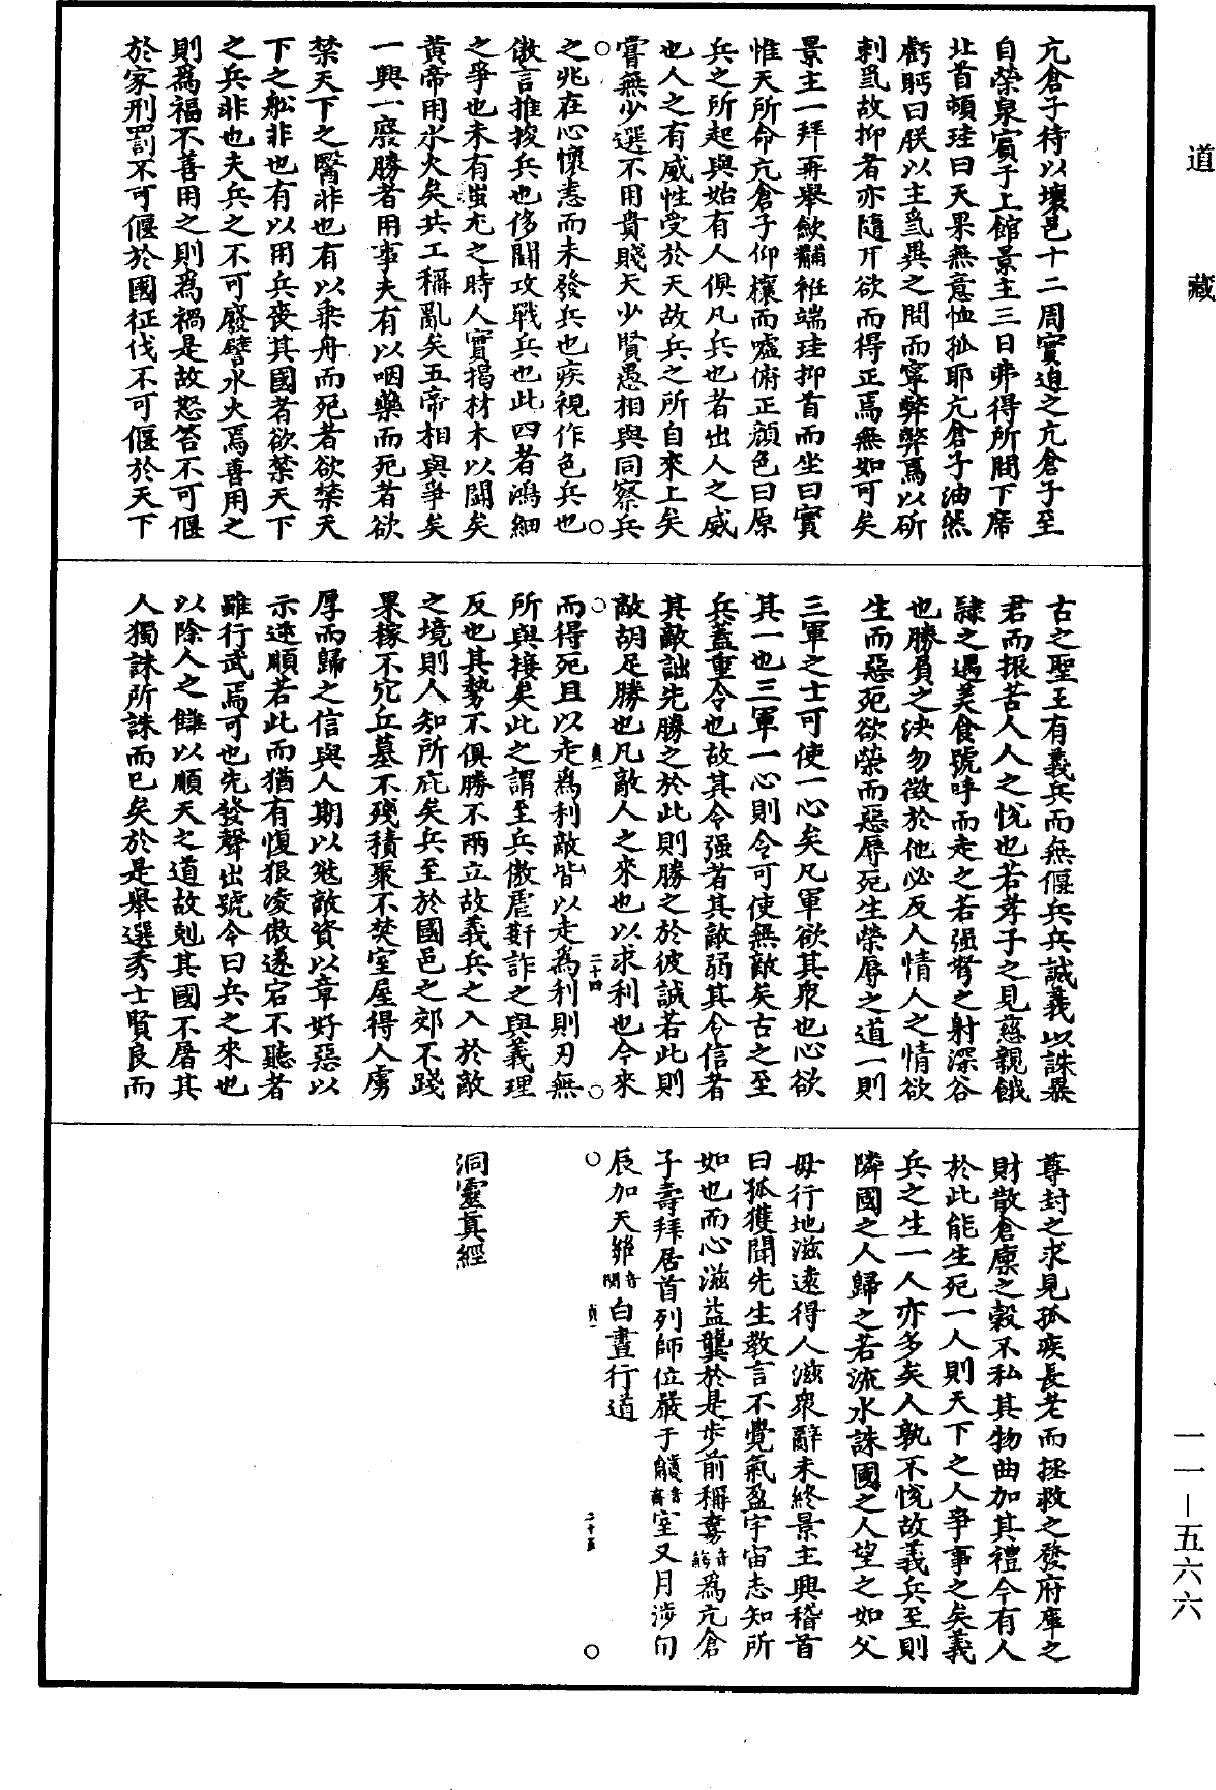 道藏
亢倉子待以壞邑十二周實迫之亢倉子至
自榮泉賓于上館景主三日弗得所問下席
北首頓珪曰天果無意恤孤耶亢倉子油然
虧眄曰朕以主爲異之問而寧弊弊焉以斫
刺爲故抑者亦隨丌欲而得正焉無如可矣
景主一拜再舉斂黼袵端珪抑首而坐曰實
惟天所命亢倉子仰榱而噓俯正顔色曰原
兵之所起與始有人俱凡兵也者出人之威
也人之有威性受於天故兵之所自來上矣
嘗無少選不用貴賤天少賢愚相與同察兵
之兆在心懷恚而未發兵也疾視作色兵也
傲言推捘兵也侈鬭攻戰兵也此四者鴻細
之爭也未有蚩尤之時人實揭材木以鬭矣
黄帝用水火矣共工稱亂矣五帝相與爭矣
一興一廢勝者用事夫有以咽藥而死者欲
禁天下之醫非也有以乗舟而死者欲禁天
下之船非也有以用兵喪其國者欲禁天下
之兵非也夫兵之不可廢譬水火焉善用之
則為福不善用之則為禍是故怒笞不可偃
於家刑罰不可偃於國征伐不可偃於天下
古之聖王有義兵而無偃兵兵誠義以誅暴
君而振苦人人之悦也若孝子之見慈親餓
隸之遇美食號呼而走之若强弩之射深谷
也勝負之決勿徵於他必反人情人之情欲
生而惡死欲榮而惡辱死生榮辱之道一則
三軍之士可使一心矣凡軍欲其衆也心欲
其一也三軍一心則令可使無敵矣古之至
兵蓋重令也故其令强者其敵弱其令信者
其敵詘先勝之於此則勝之於彼誠若此則
敵胡足勝也凡敵人之來也以求利也今來
貞一
二十四
而得死且以走為利敵皆以走為利則刃無
所與接矣此之謂至兵傲虐姧詐之與義理
反也其勢不俱勝不兩立故義兵之入於敵
之境則人知所庇矣兵至於國邑之郊不踐
果稼不穴丘墓不殘積聚不焚室屋得人虜
厚而歸之信與人期以敓敵資以章好惡以
示逆順若此而猶有愎狠凌傲遂宕不聽者
雖行武焉可也先發聲出號令曰兵之來也
以除人之讎以順天之道故剋其國不屠其
人獨誅所誅而已矣於是舉選秀士賢良而
尊封之求見孤疾長老而拯救之發府庫之
財散倉廩之穀不私其物曲加其禮今有人
於此能生死一人則天下之人爭事之矣義
兵之生一人亦多矣人孰不悦故義兵至則
隣國之人歸之若流水誅國之人望之如父
母行地滋遠得人滋衆辭未終景主興稽首
曰孤獲聞先生教言不覺氣盈宇宙志知所
如也而心滋益龔於是步前稱為亢倉
子壽拜居首列師位嚴于音齋室又月涉旬
辰加天白晝行道
貞一
二十五
洞靈真經
一一—五六六